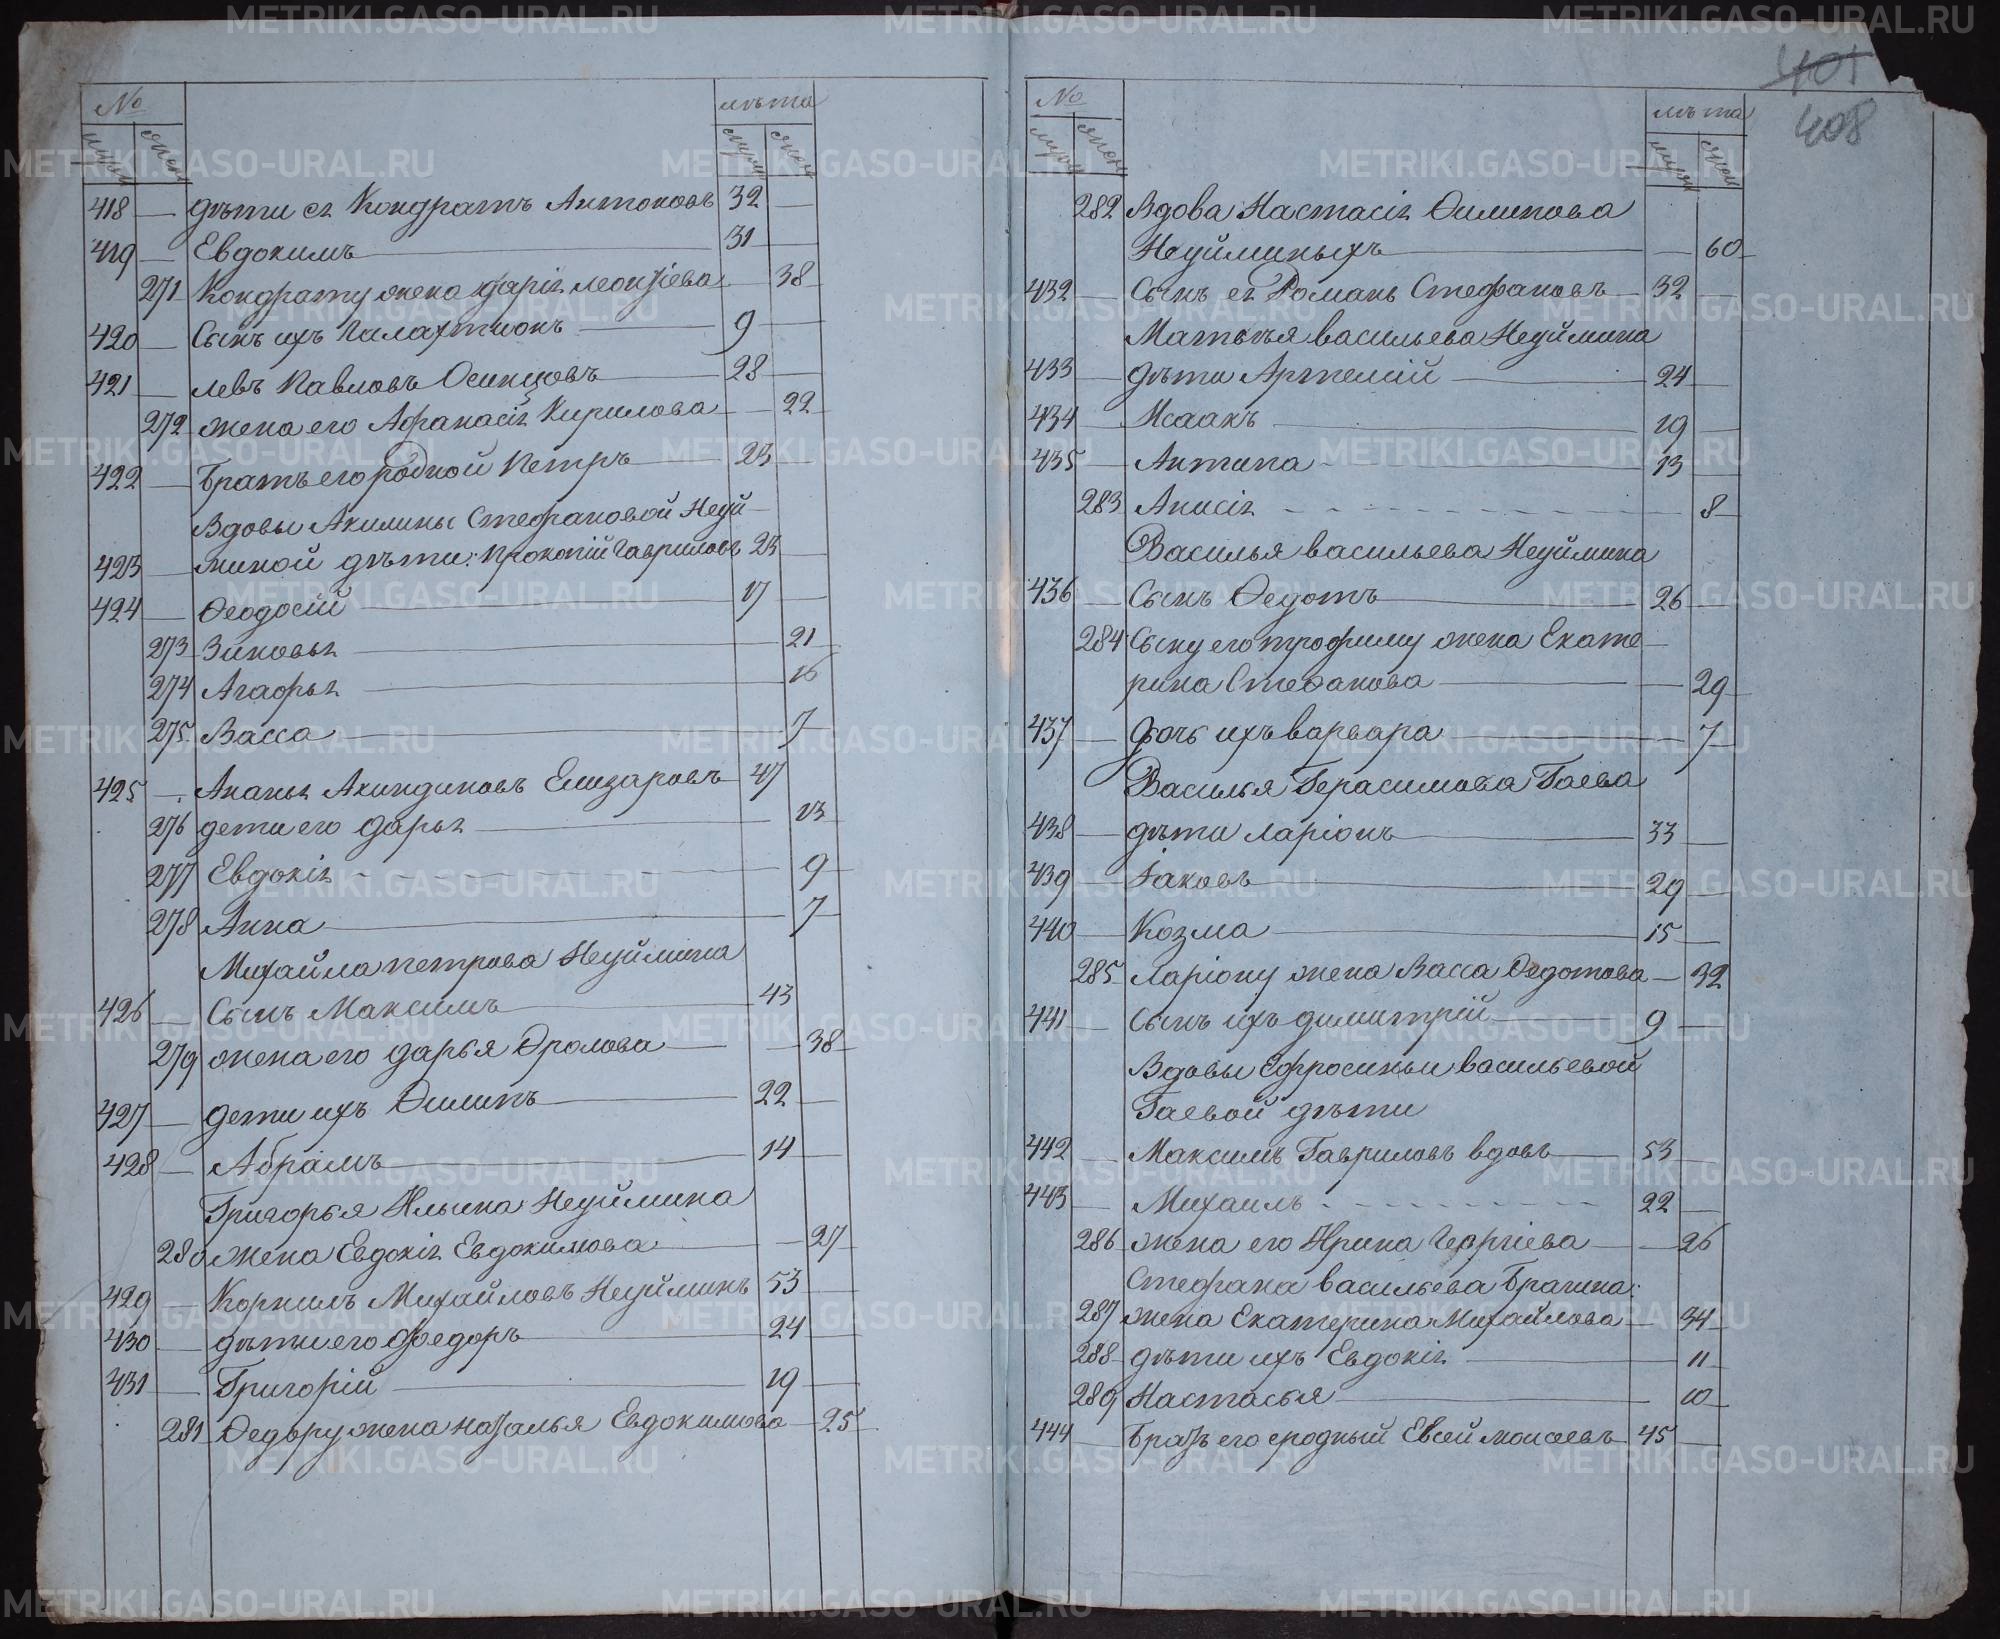 № лѣта
мужск женск мужск женск
418 — дѣти ея Кондратъ Антоновъ 32 —
419 — Евдокимъ — 31 —
271 Кондрату жена дарія леонтіева — 38
420 — Сынъ ихъ Галахтионъ — 9 —
421 — левъ Павловъ Осинцовъ — 28 —
272 жена его Афанасія Кирилова — 22
422 — Братъ его родной Петръ — 23 —
Вдовы Акилины Стефановой Неуй-
423 — миной дѣти: Прокопій Гавриловъ 23 —
424 — Ѳеодосій — 17 —
273 Зиновья — 21
274 Агафья — 16
275 Васса — 7
425 — Ананья Акиндиновъ Елизаровъ — 47
276 дети его дарья — 13
277 Евдокія — 9
278 Анна — 7
Михайла петрова Неуймина
426 — Сынъ Максимъ — 43 —
279 жена его дарья Ѳролова — — 38
427 — дети ихъ Ѳилипъ — 22 —
428 — Абрамъ — 14 —
Григорья Ильина Неуймина
280 жена Евдокія Евдокимова — — 27
429 — Корнилъ Михайловъ Неуйминъ 53 —
430 — дѣти его Федоръ — 24 —
431 — Григорій — 19 —
281 Ѳедору жена наталья Евдокимова — 25
401
408
№ лѣта
мужск женск мужск женск
282 Вдова Настасія Ѳилипова
Неуйминыхъ — — 60
432 — Сынъ ея Романъ Стефановъ — 32 —
Матвѣя васильева Неуймина
433 — дѣти Артемий — 24 —
434 — Исаакъ — 19 —
435 — Антипа — 13 —
283 Анисія — 8
Василья васильева Неуймина
436 — Сынъ Ѳедотъ — 26 —
284 Сыну его трофиму жена Екате-
рина Стефанова — — 29
437 — дочь ихъ варвара — 7
Василья Герасимова Гаева
438 — дѣти ларіонъ — 33 —
439 — Іаковъ — 29 —
440 — Козма — 15 —
285 ларіону жена Васса Ѳедотова — 32
441 — Сынъ ихъ димитрій — 9 —
Вдовы Ефросиньи васильевой
Гаевой дѣти
442 — Максимъ Гавриловъ вдовъ — 53
443 — Михаилъ — 22 —
286 жена его Ирина Георгіева — — 26
Стефана васильева Брагина:
287 жена Екатерина Михайлова — 34
288 дѣти ихъ Евдокія — 11
289 Настасья — 10
444 — Братъ его сродный Евсей моисеевъ 45 —